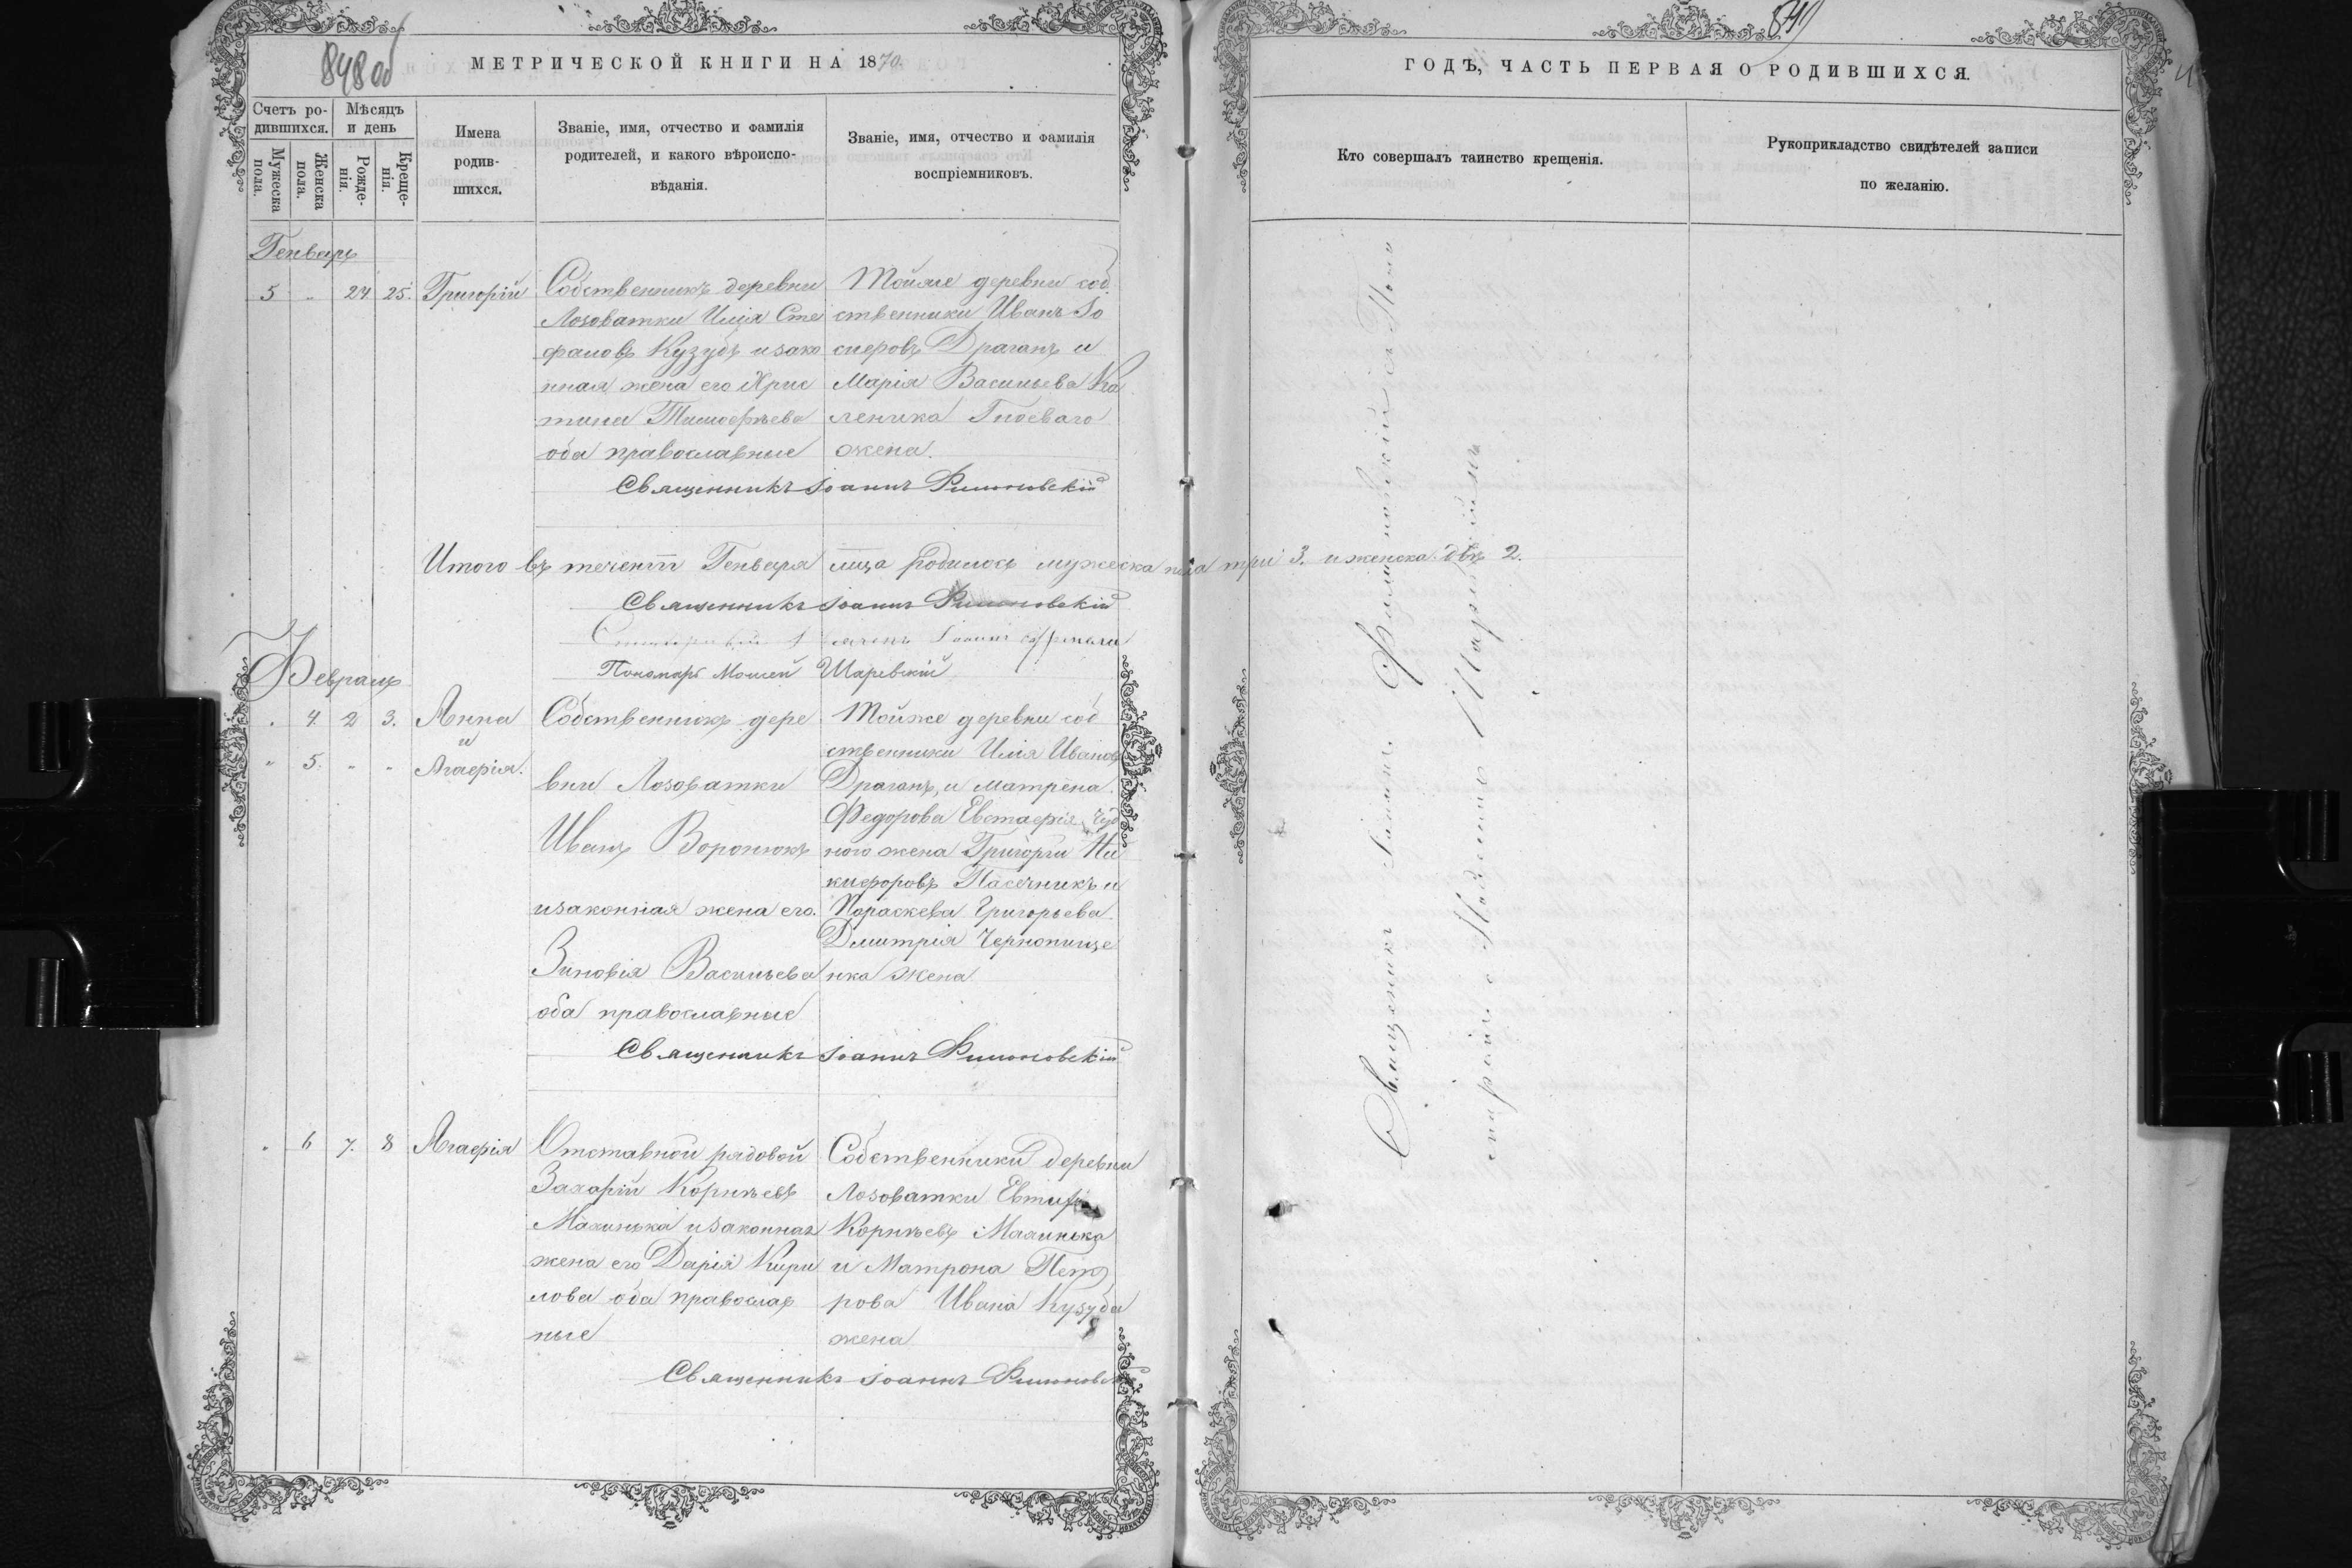 848 об
МЕТРИЧЕСКОЙ КНИГИ НА 1870
Счетъ родившихся.
Мѣсяцъ и день
Мужеска пола.
Женска пола.
Рожденія.
Крещенія.
Имена родившихся.
Званіе, имя, отчество и фамилія
родителей, и какого вѣроиспо-
вѣданія.
Званіе, имя, отчество и фамилія
воспріемниковъ.
Генварь
5 " 24 25. Григорій
Собственникъ деревни
Лозоватки Илія Сте
фановъ Кузубъ изако
нная жена его Хрис
тина Тимофѣева
оба православные
Тойже деревни соб
ственники Иванъ Іо
сифовъ Драганъ и
Марія Васильева Ка
леника Гноеваго
жена.
Священникъ Іоаннъ Филиповскій
Итого въ теченіи Генваря мца родилось мужеска пола три 3. и женска двѣ 2.
Священникъ Іоаннъ Филиповскій
Пономарь Моисей Шаревскій
Февраль
" 4. 2 3. Анна
и
" 5. " " Агафія.
Собственникъ дере
вни Лозоватки
Иванъ Воронюкъ
изаконная жена его.
Зиновія Васильева
оба православные
Тойже деревни соб
ственники Илія Ивановъ
Драганъ, и Матрена
Федорова Евстафія Чуд
ного жена Григорій Ни
кифоровъ Пасечникъ и
Параскева Григорьева
Дмитрія Чернопище
нка жена
Священникъ Іоаннъ Филиповскій
" 6 7. 8 Агафія
Отставной рядовой
Захарій Корнѣевъ
Махинька изаконная
жена его Дарія Кири
лова оба православ
ные
Собственники деревни
Лозоватки
Корнѣевъ Махинька
и Матрона Пет
рова Ивана Кузуба
жена
Священникъ Іоаннъ Филиповскій
849
ГОДѢ, ЧАСТЬ ПЕРВАЯ О РОДИВШИХСЯ.
Кто совершалъ таинство крещенія.
Рукоприкладство свидѣтелей записи
по желанію.
Священникъ Іоаннъ Филиповскій съ Поно
маремъ Моисеемъ Шаревскимъ